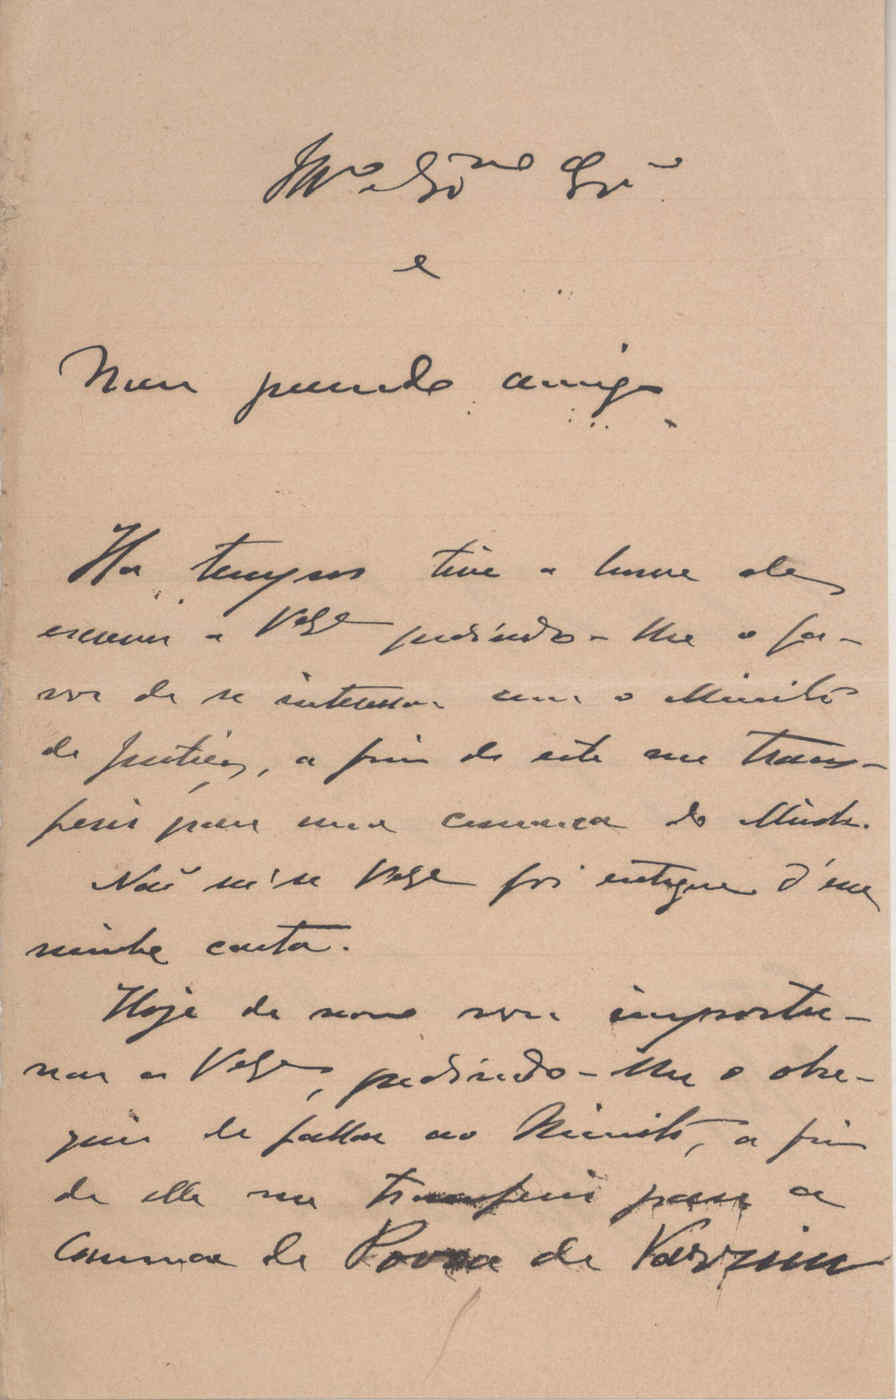 e
Meu prezado amigo
Ha tempos tive a honra de
escrever a V. Exª pedindo-lhe o fa-
vor de se interessar com o Ministro
da Justiça, a fim de este me trans-
ferir para uma comarca do Minho.
Não sei se V. Exª foi entregue d'essa
minha carta.
Hoje de novo vou importu-
nar a V. Exª, pedindo-lhe o obse-
quio de fallar ao Ministro, a fim
de elle me transferir para a
comarca da Povoa de Varzim